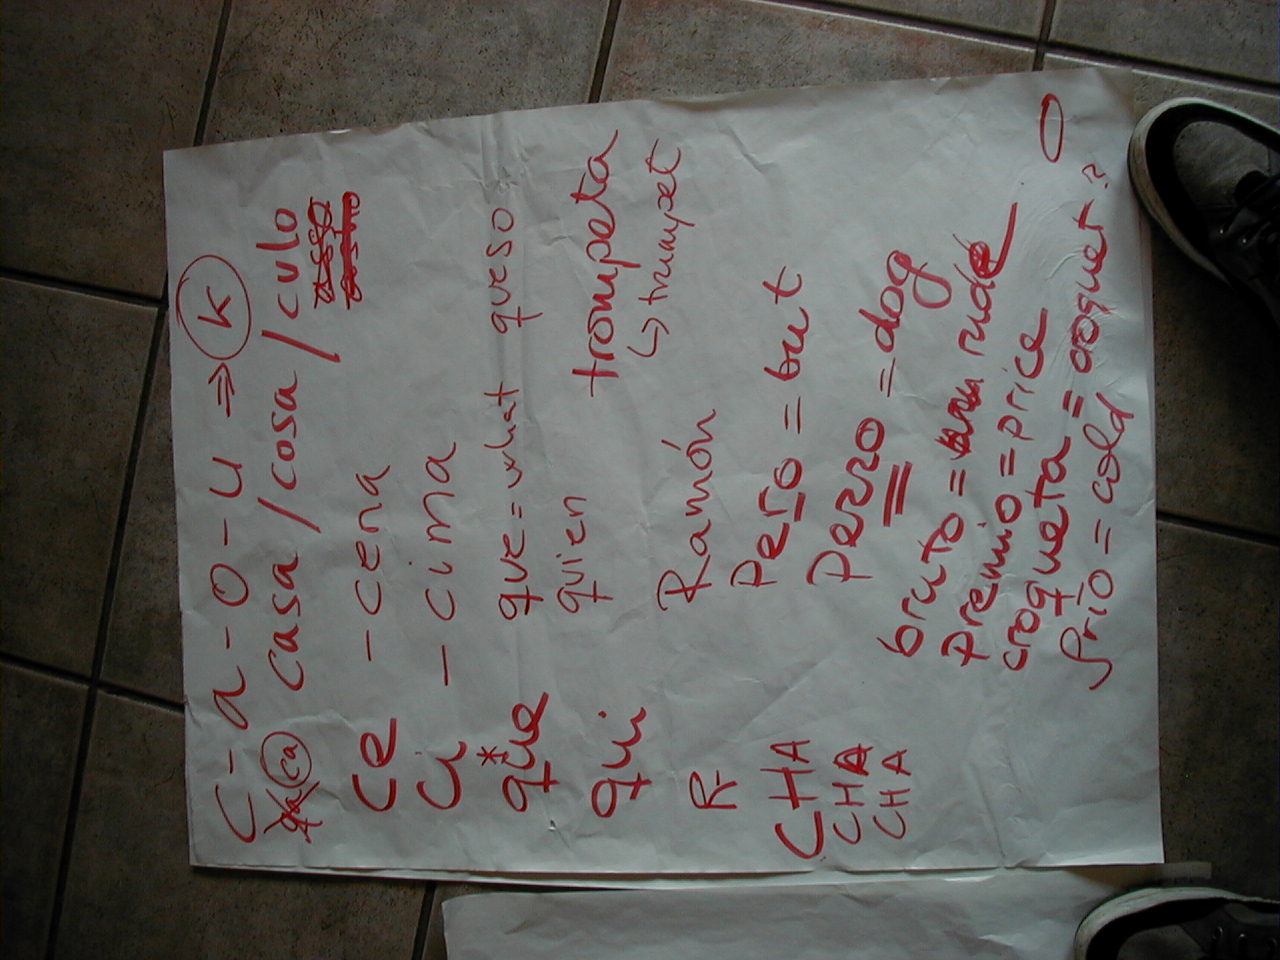 C-a-o-u ⇒ K
ca casa/cosa/culo
ce - cena
Ci - cima
que* que=what queso
qui quien trompeta
↳ trumpet
R- Ramón
CHA Pero = but
CHA Perro = dog
CHA
bruto = rude
premio = price
croqueta = croquet?
frío = cold